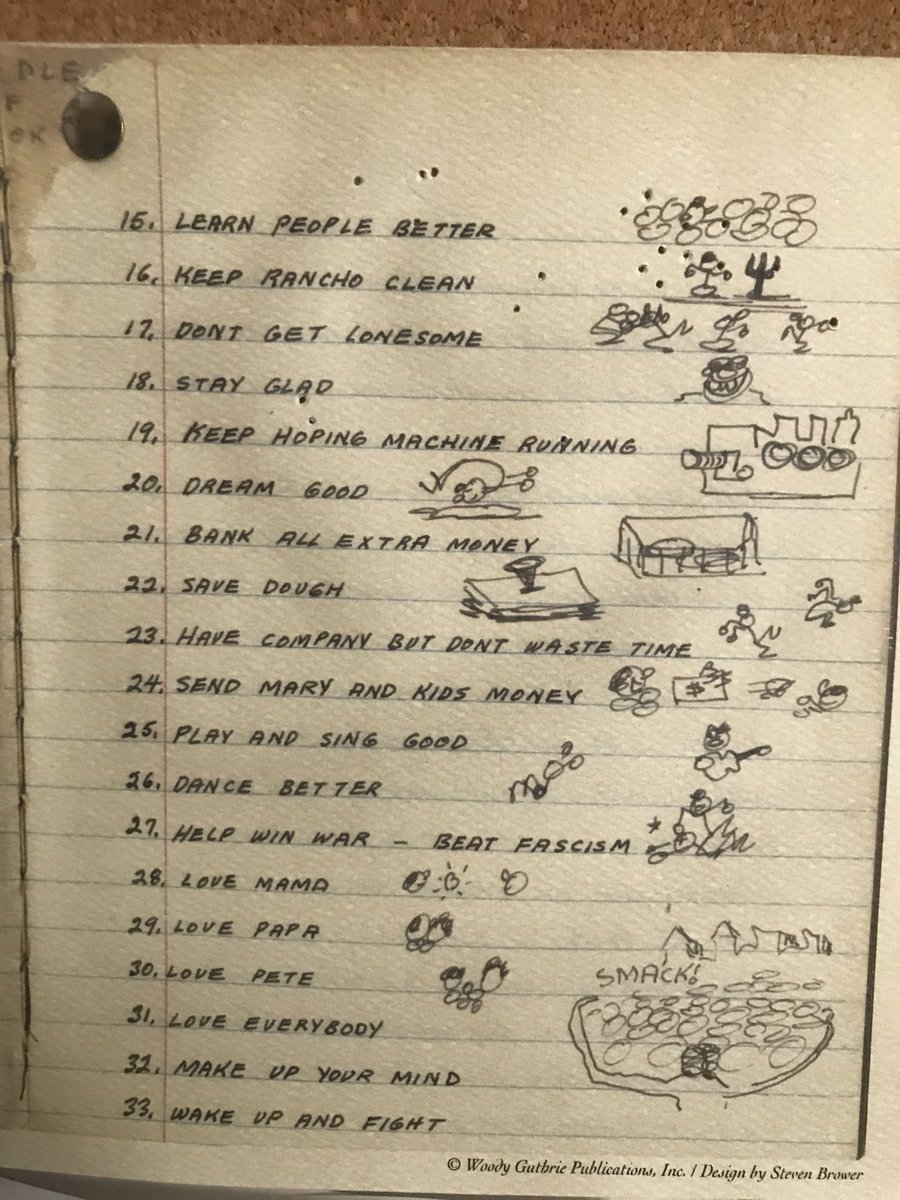 DLE
F
OK
15. LEARN PEOPLE BETTER
16. KEEP RANCHO CLEAN
17. DONT GET LONESOME
18. STAY GLAD
19. KEEP HOPING MACHINE RUNNING
20. DREAM GOOD
21. BANK ALL EXTRA MONEY
22. SAVE DOUGH
23. HAVE COMPANY BUT DONT WASTE TIME
24. SEND MARY AND KIDS MONEY
$
25. PLAY AND SING GOOD
26. DANCE BETTER
27. HELP WIN WAR - BEAT FASCISM
28. LOVE MAMA
29. LOVE PAPA
30. LOVE PETE
SMACK!
31. LOVE EVERYBODY
32. MAKE UP YOUR MIND
33. WAKE UP AND FIGHT
© Woody Guthrie Publications, Inc. / Design by Steven Brower